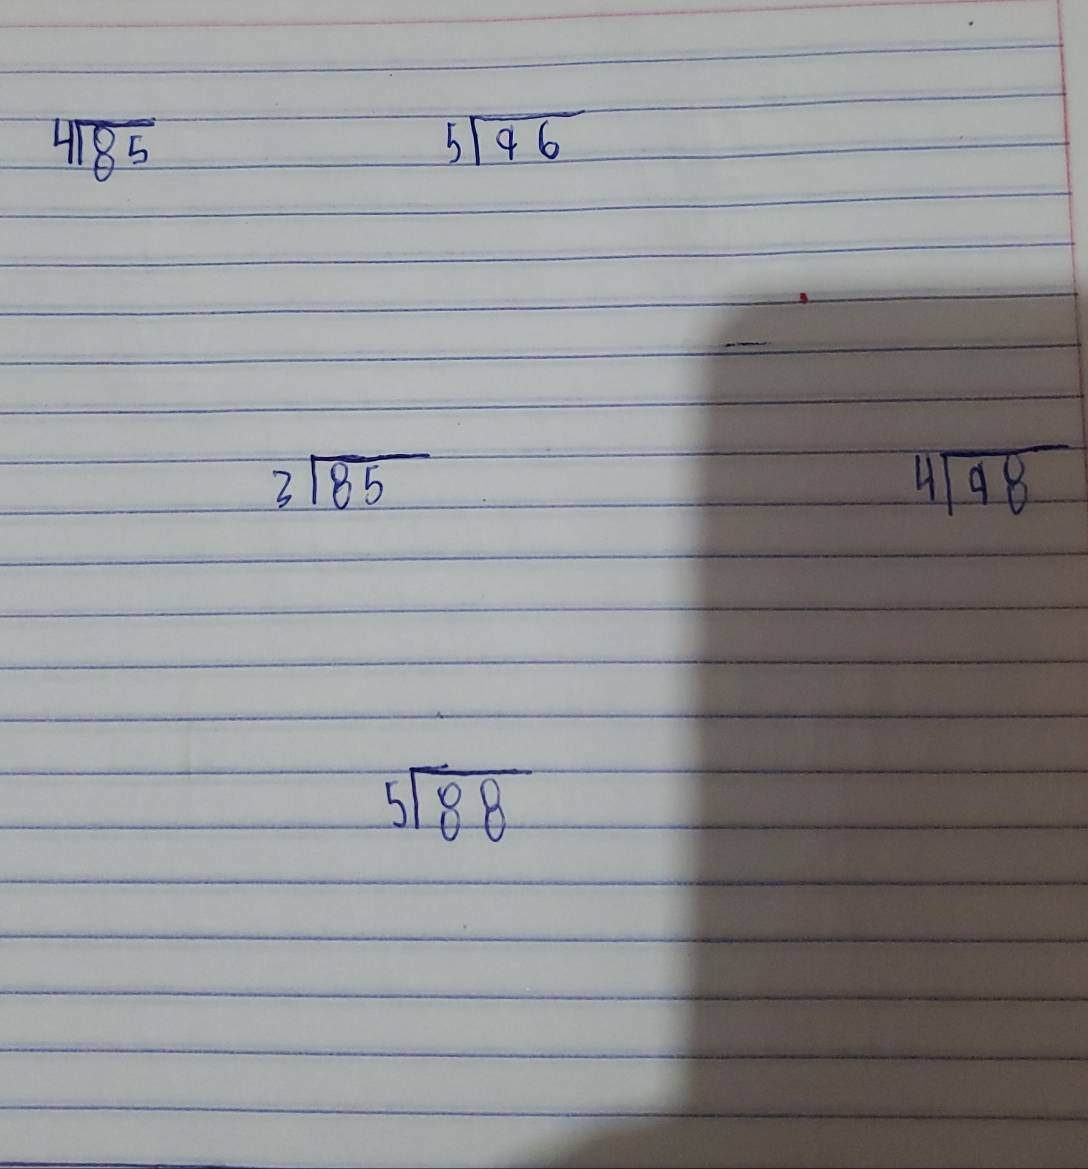 4)85 5)96
3)85 4)98
5)88